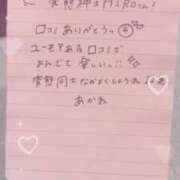 変態紳士 MSROさん!
口コミありがとうっ
ユーモアある口コミで
よんでて楽しい♡!!
変態同士なかよくしようね♪
あかね